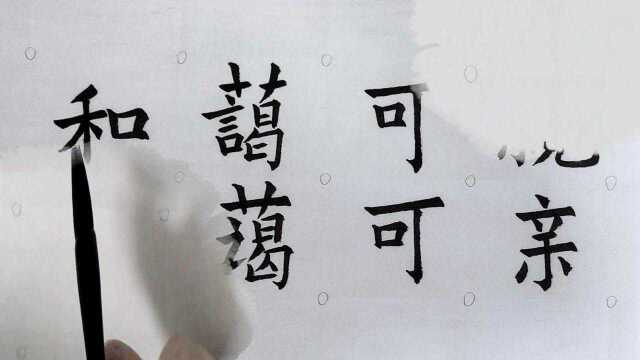 和藹可
蔼可亲